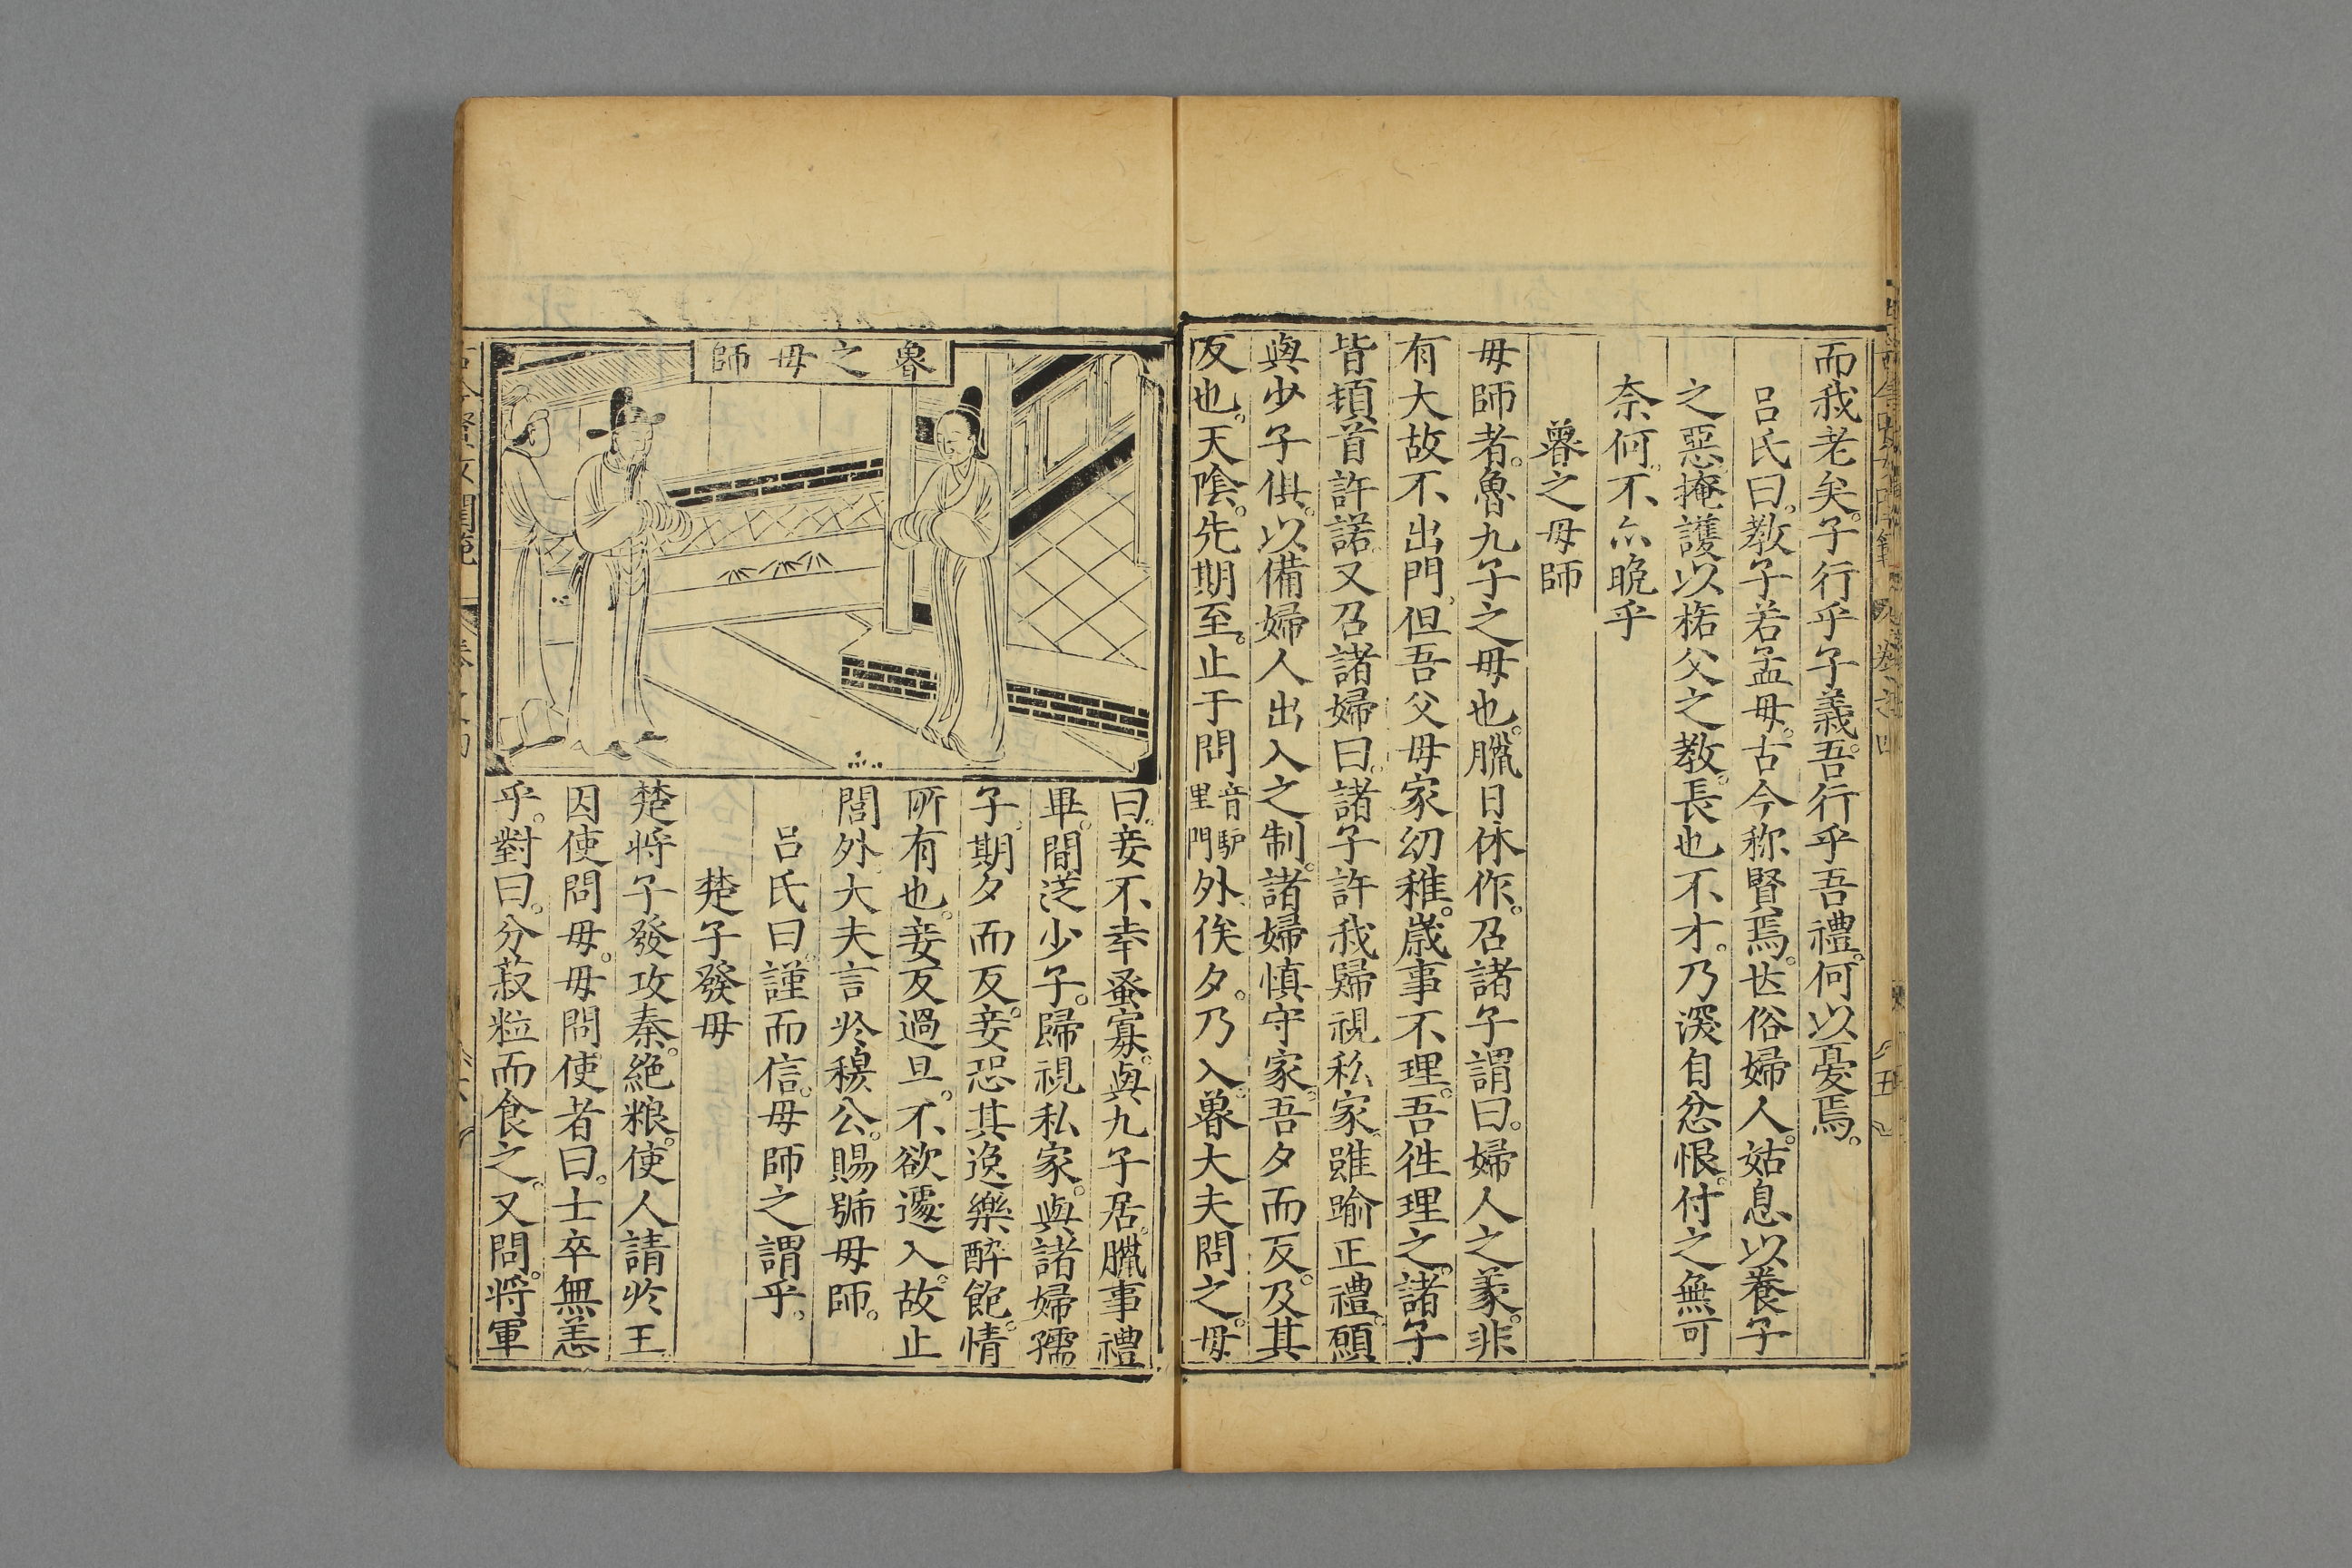 而我老矣。子行乎子義。吾行乎吾禮。何以憂焉。
呂氏曰。教子若孟母。古今称賢焉。世俗婦人。姑息以養子
之惡。掩護以格父之教。長也不才。乃深自忿恨。付之無可
奈何。不亦晚乎
魯之母師
母師者。魯九子之母也。臘日休作。召諸子謂曰。婦人之義。非
有大故不出門。但吾父母家幼稚。歲事不理。吾徃理之。諸子
皆頓首許諾。又召諸婦曰。諸子許我歸視私家。雖踰正禮。願
與少子俱。以備婦人出入之制。諸婦慎守家。吾夕而反。及其
反也。天陰。先期至。止于閭音馿里門外。俟夕。乃入。魯大夫問之。母
魯之母師
曰。妾不幸蚤寡。與九子居。臘事禮
畢。間从少子。歸視私家。與諸婦孺
子。期夕而反。妾恐其逸樂醉飽。情
所有也。妾反過旦。不欲遽入。故止
閭外。大夫言於穆公。賜號母師。
呂氏曰。謹而信。母師之謂乎。
楚子發母
楚将子發攻秦。絕粮。使人請於王
因使問母。母問使者曰。士卒無恙
乎。對曰。分菽粒而食之。又問。将軍